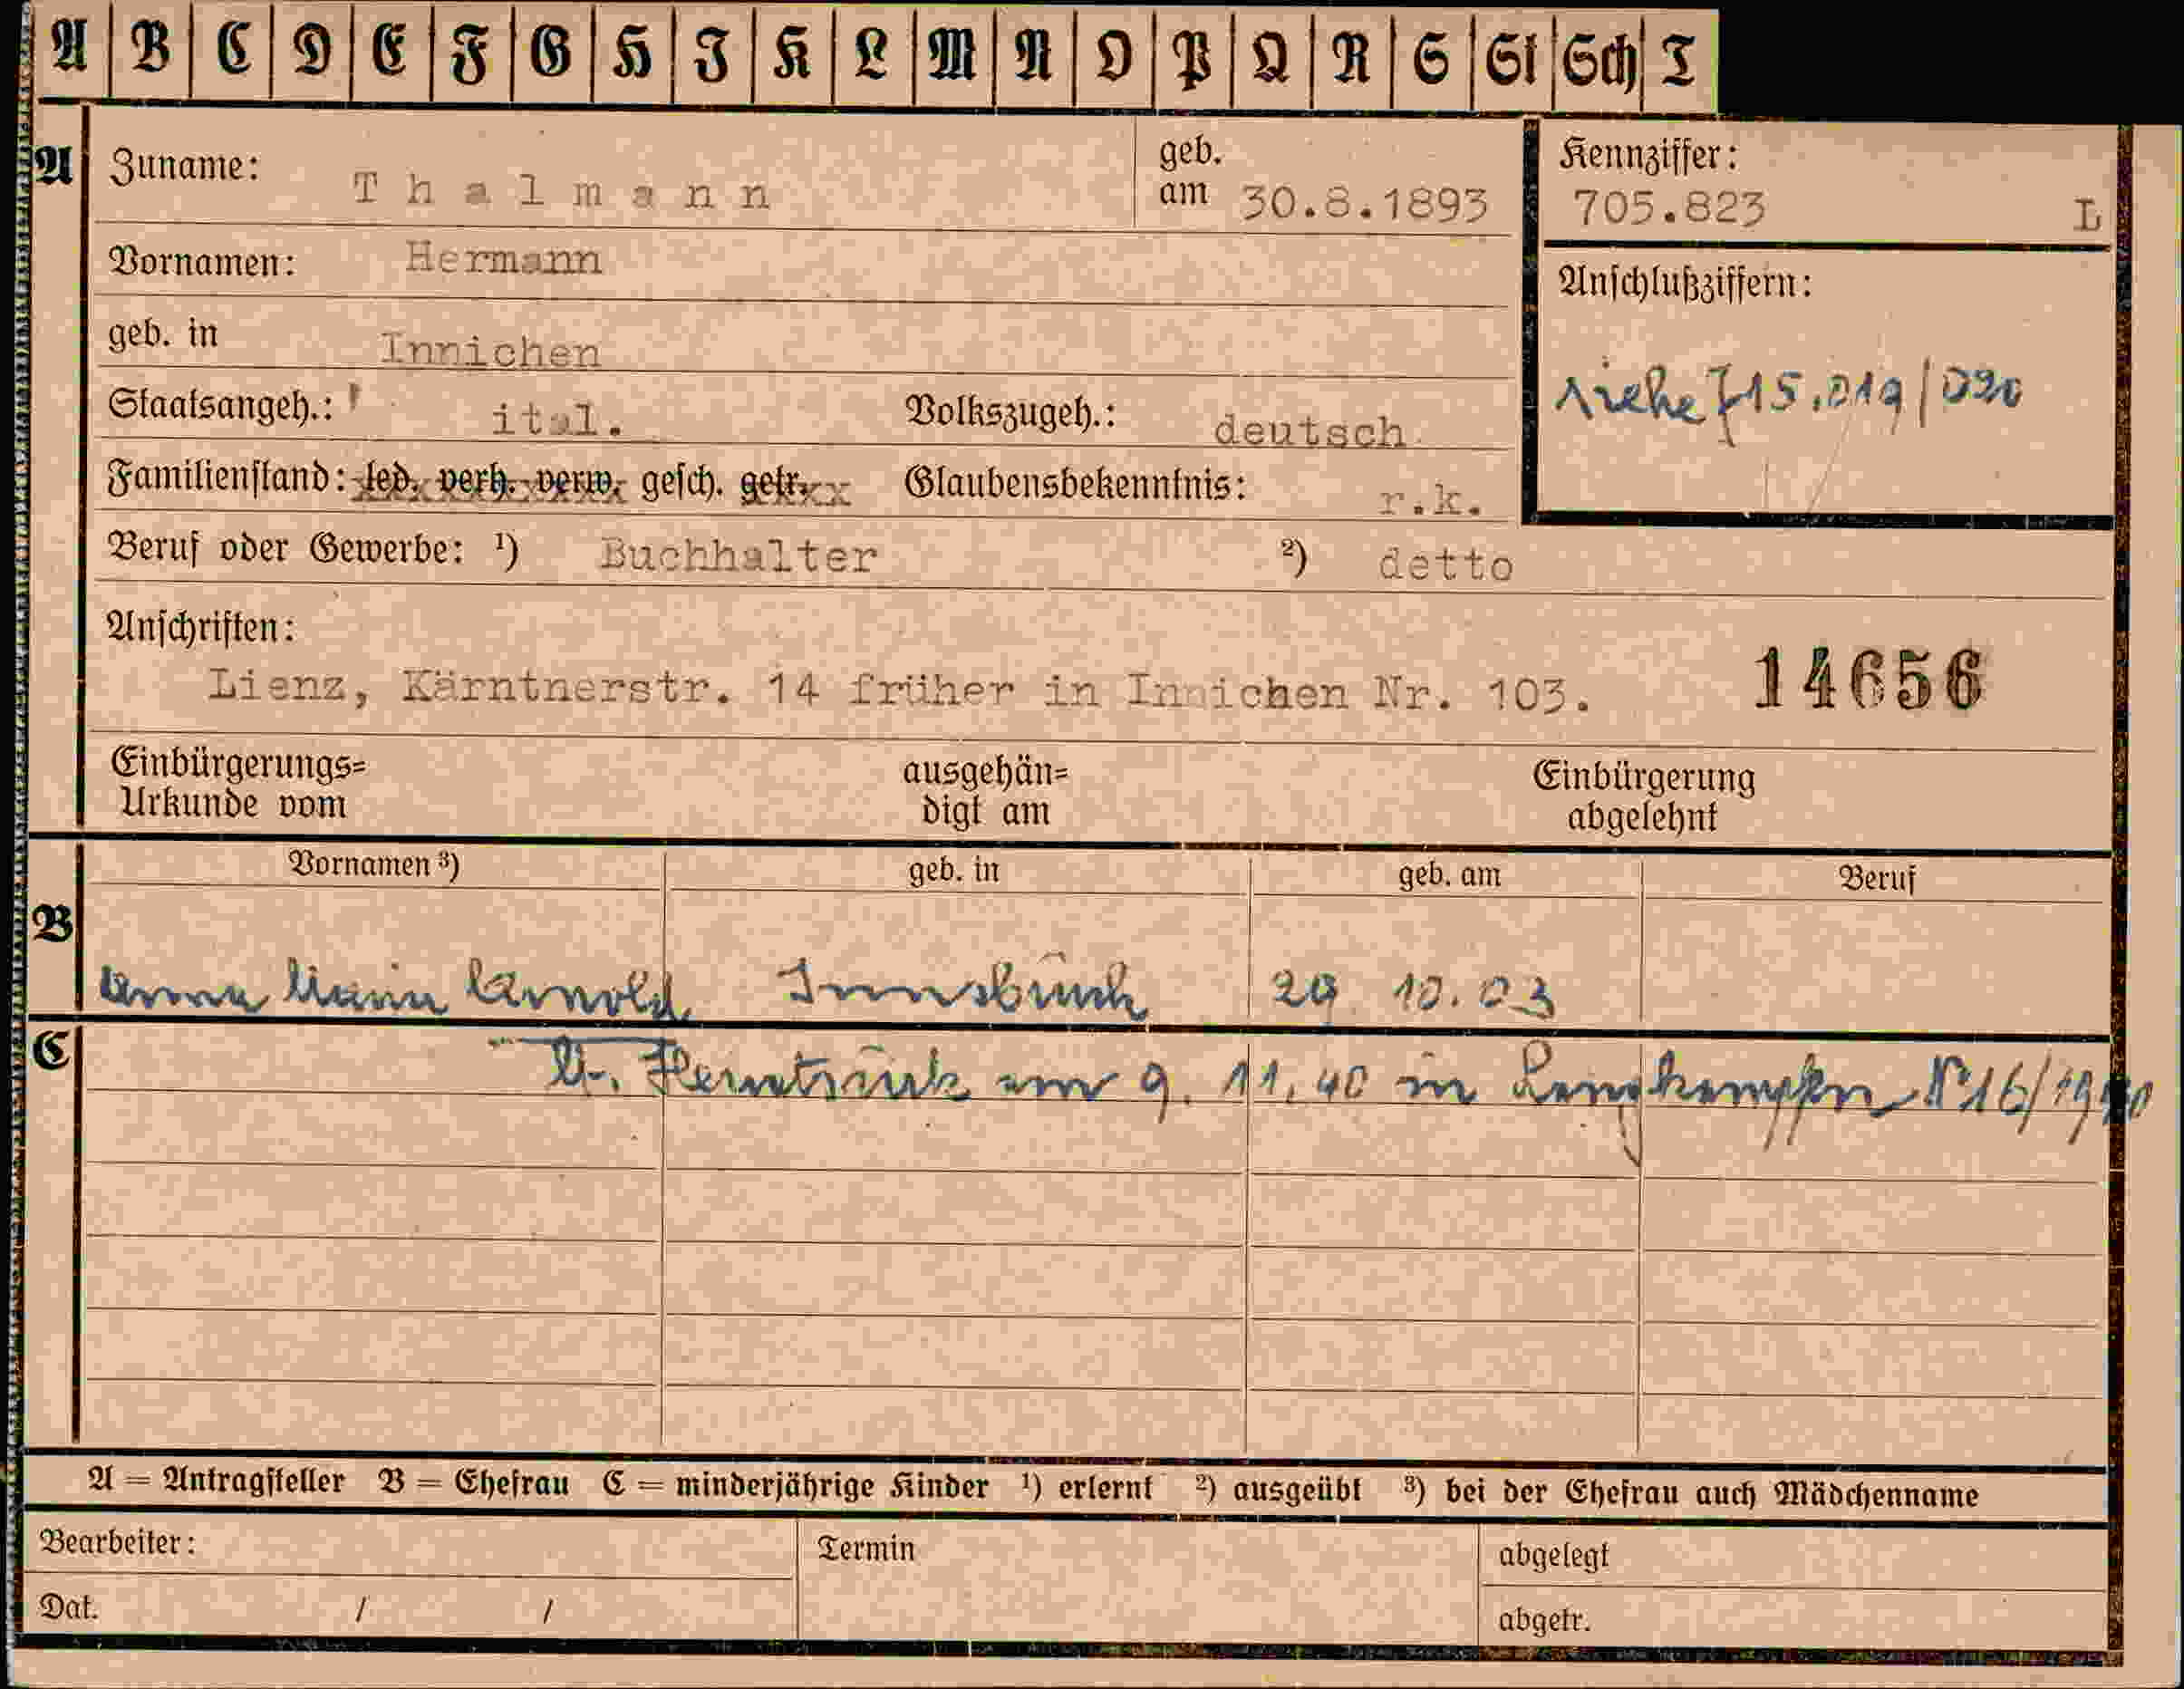 A B C D E F G H I K L M N O P Q R S St Sch T
A Zuname: Thalmann geb. am 30.8.1893 Kennziffer: 705.823 L
Vornamen: Hermann
Anschlußziffern:
geb. in Innichen
siehe 715.019/020
Staatsangeh.: ital. Volkszugeh.: deutsch
Familienstand: led. verh. verw. gesch. getr. Glaubensbekenntnis: r.k.
Beruf oder Gewerbe: ¹) Buchhalter ²) detto
Anschriften:
Lienz, Kärntnerstr. 14 früher in Innichen Nr. 103. 14656
Einbürgerungs= ausgehän= Einbürgerung
Urkunde vom digt am abgelehnt
Vornamen ³) geb. in geb. am Beruf
B
Anna Maria Arnold Innsbruck 29 10.03
C
lt. Heiratsurk am 9. 11. 40 in Nº 16/1940
A = Antragsteller B = Ehefrau C = minderjährige Kinder ¹) erlernt ²) ausgeübt ³) bei der Ehefrau auch Mädchenname
Bearbeiter: Termin abgelegt
Dat. / / abgetr.